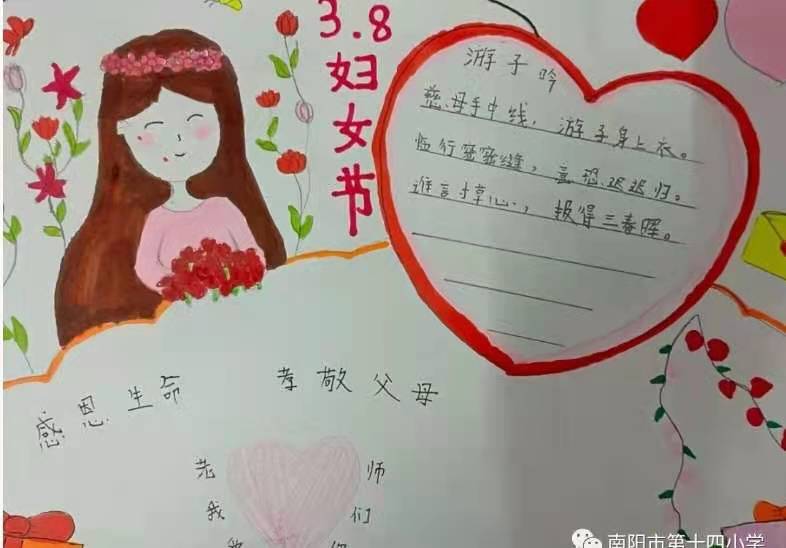 3.8
妇女节
游子吟
慈母手中线，游子身上衣。
临行密密缝，意恐迟迟归。
谁言寸草心，报得三春晖。
感恩生命 孝敬父母
老师
我们
南阳市第十四小学